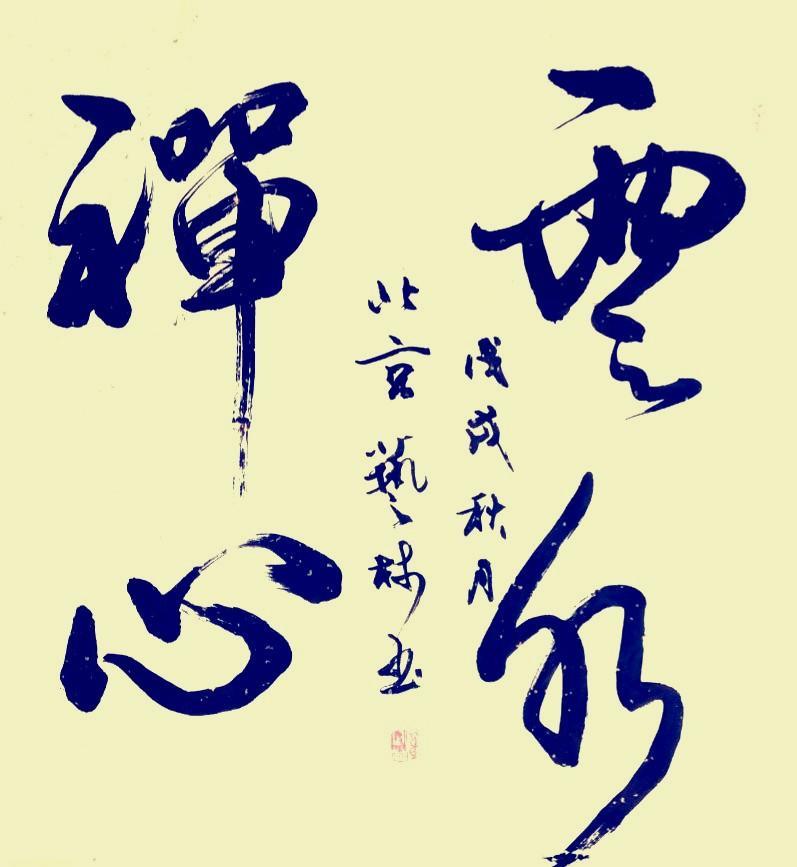 雲水
戊戌秋月
北京藝林书
禪心